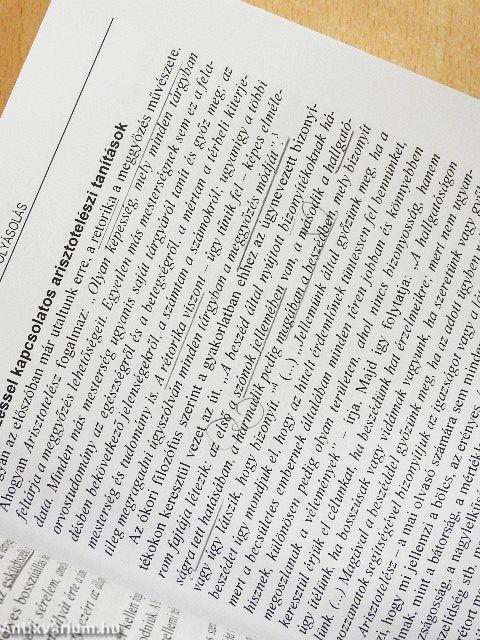 OLYASOLÁS
éssel kapcsolatos arisztotelészi tanítások
Ahogyan az előszóban már utaltunk erre, a retorika a meggyőzés művészete.
Arisztotelész így fogalmaz: „Olyan képesség, mely minden tárgyban
feltárja a meggyőzés lehetőségeit. Egyetlen más mesterségnek sem ez a fela-
data. Minden más mesterség ugyanis saját tárgyáról tanít és győz meg; az
orvostudomány az egészségről és a betegségről, a mértan a térbeli kiterje-
désben bekövetkező jelenségekről, a számtan a számokról; ugyanígy a többi
mesterség és tudomány is. A rétorika viszont – úgy tűnik fel – képes elméle-
tileg megragadni úgyszólván minden tárgyban a meggyőzés módját”.
Az ókori filozófus szerint a gyakorlatban ehhez az úgynevezett bizonyí-
tékokon keresztül vezet az út. „A beszéd által nyújtott bizonyítékoknak há-
rom fajtája létezik: az első a szónok jellemében van, a második a hallgató-
ságra tett hatásában, a harmadik pedig magában a beszédben, mely bizonyít
vagy úgy látszik, hogy bizonyít.” (...) „Jellemünk által győzünk meg, ha a
beszédet úgy mondjuk el, hogy az hitelt érdemlőnek tüntessen fel bennünket,
mert a becsületes embernek általában minden téren jobban és könnyebben
hisznek, különösen pedig olyan területen, ahol nincs bizonyosság, hanem
megoszlanak a vélemények” – írja. Majd így folytatja: „A hallgatóságon
keresztül érjük el célunkat, ha beszédünk hat érzelmeikre, mert nem ugyan-
úgy ítélünk, ha bosszúsak vagy vidámak vagyunk, ha szeretünk vagy
(...) Magával a beszéddel győzünk meg, ha az adott ügyben
segítségével bizonyítjuk az igazságot vagy a
Arisztotelész – a mai olvasó számára sem
hogy mi jellemzi a bölcs, az erényes
mint a bátorság, a mérték
a nagylelkűség
stb.
Antikvárium.hu